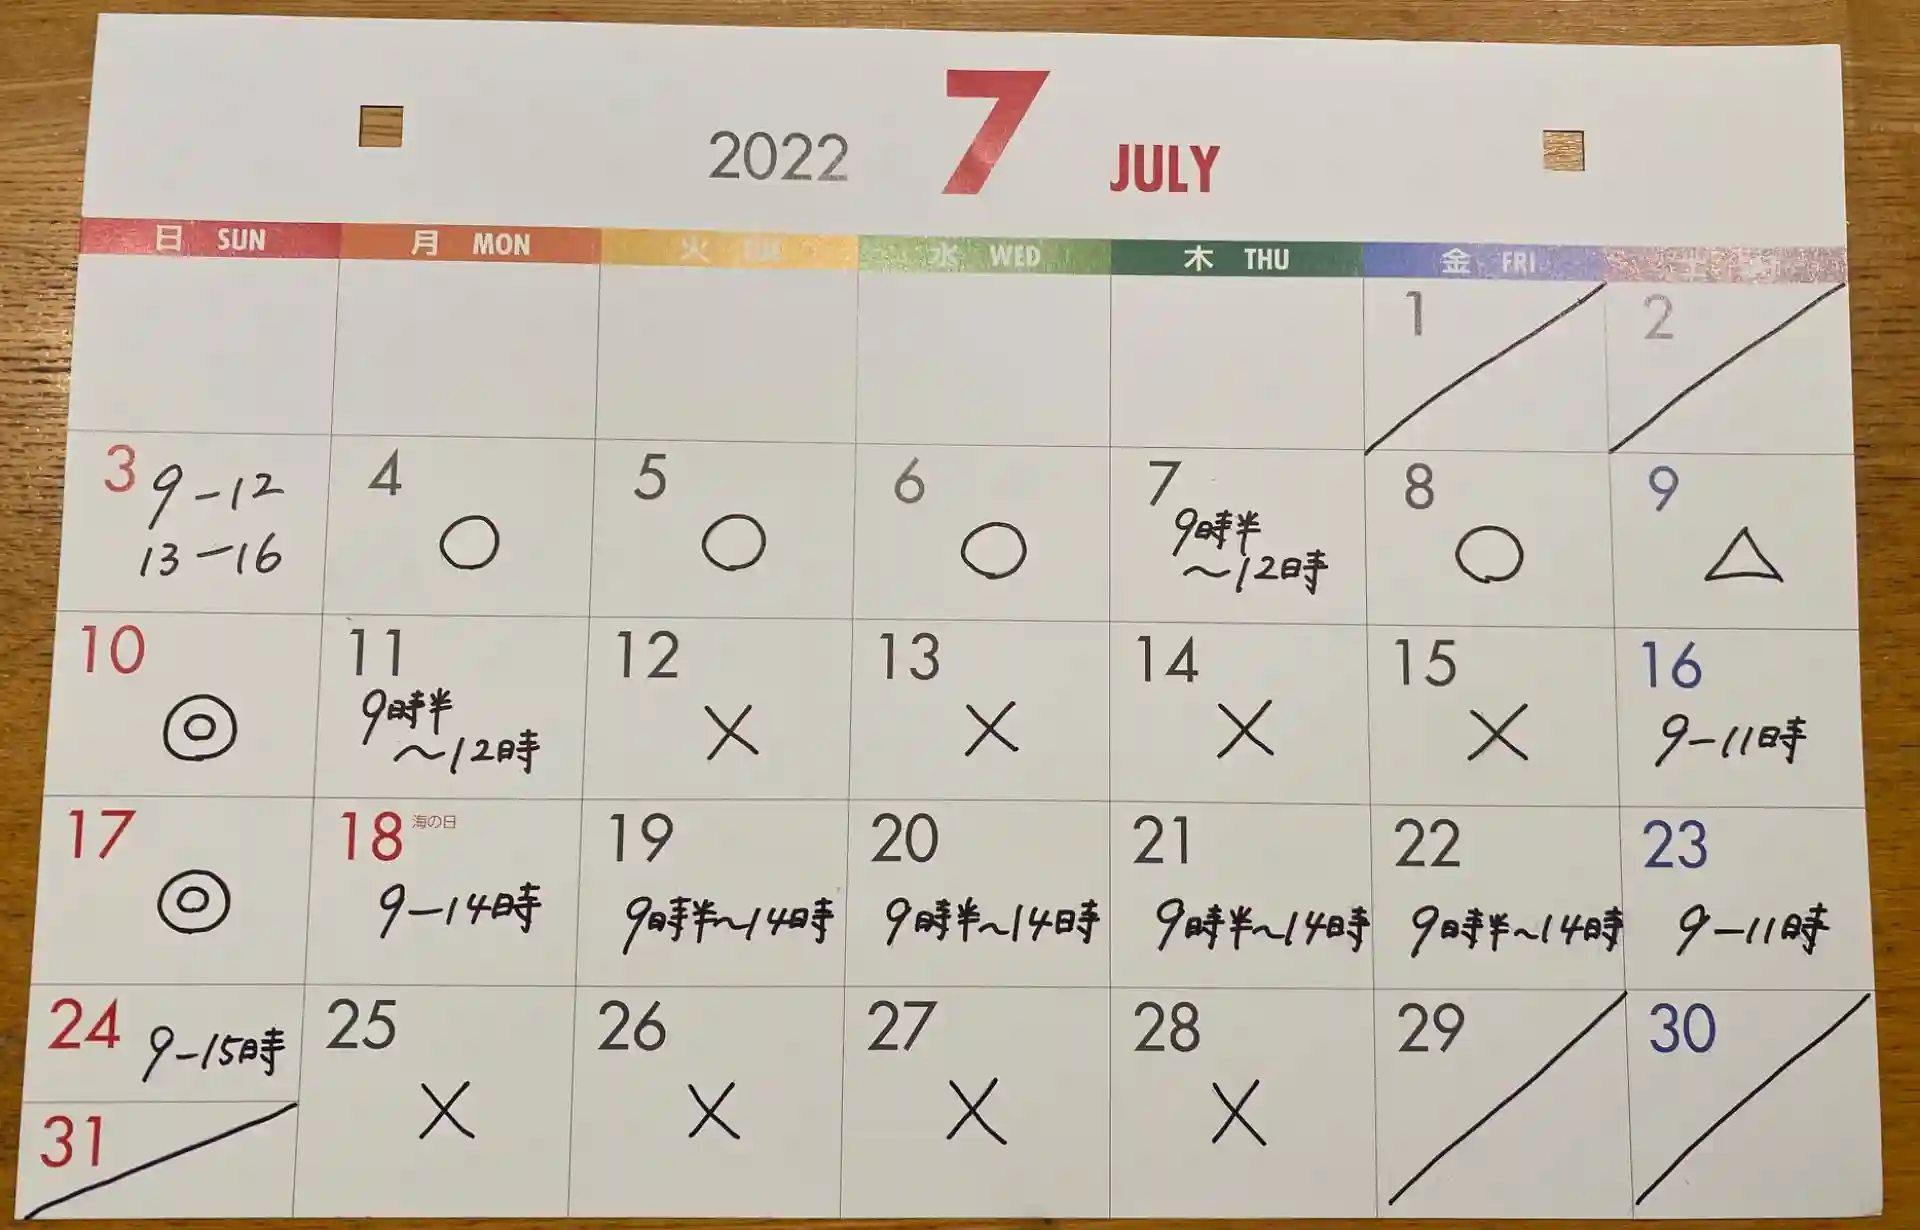 2022 7 JULY
日 SUN 月 MON 火 TUE 水 WED 木 THU 金 FRI 土
1 2
3 4 5 6 7 8 9
9-12
13-16
9時半
~12時
○ ○ ○ ○ △
10 11 12 13 14 15 16
◎
9時半
~12時
× × × × 9-11時
17 18 海の日 19 20 21 22 23
◎ 9-14時 9時半~14時 9時半~14時 9時半~14時 9時半~14時 9-11時
24 9-15時 25 26 27 28 29 30
× × × ×
31